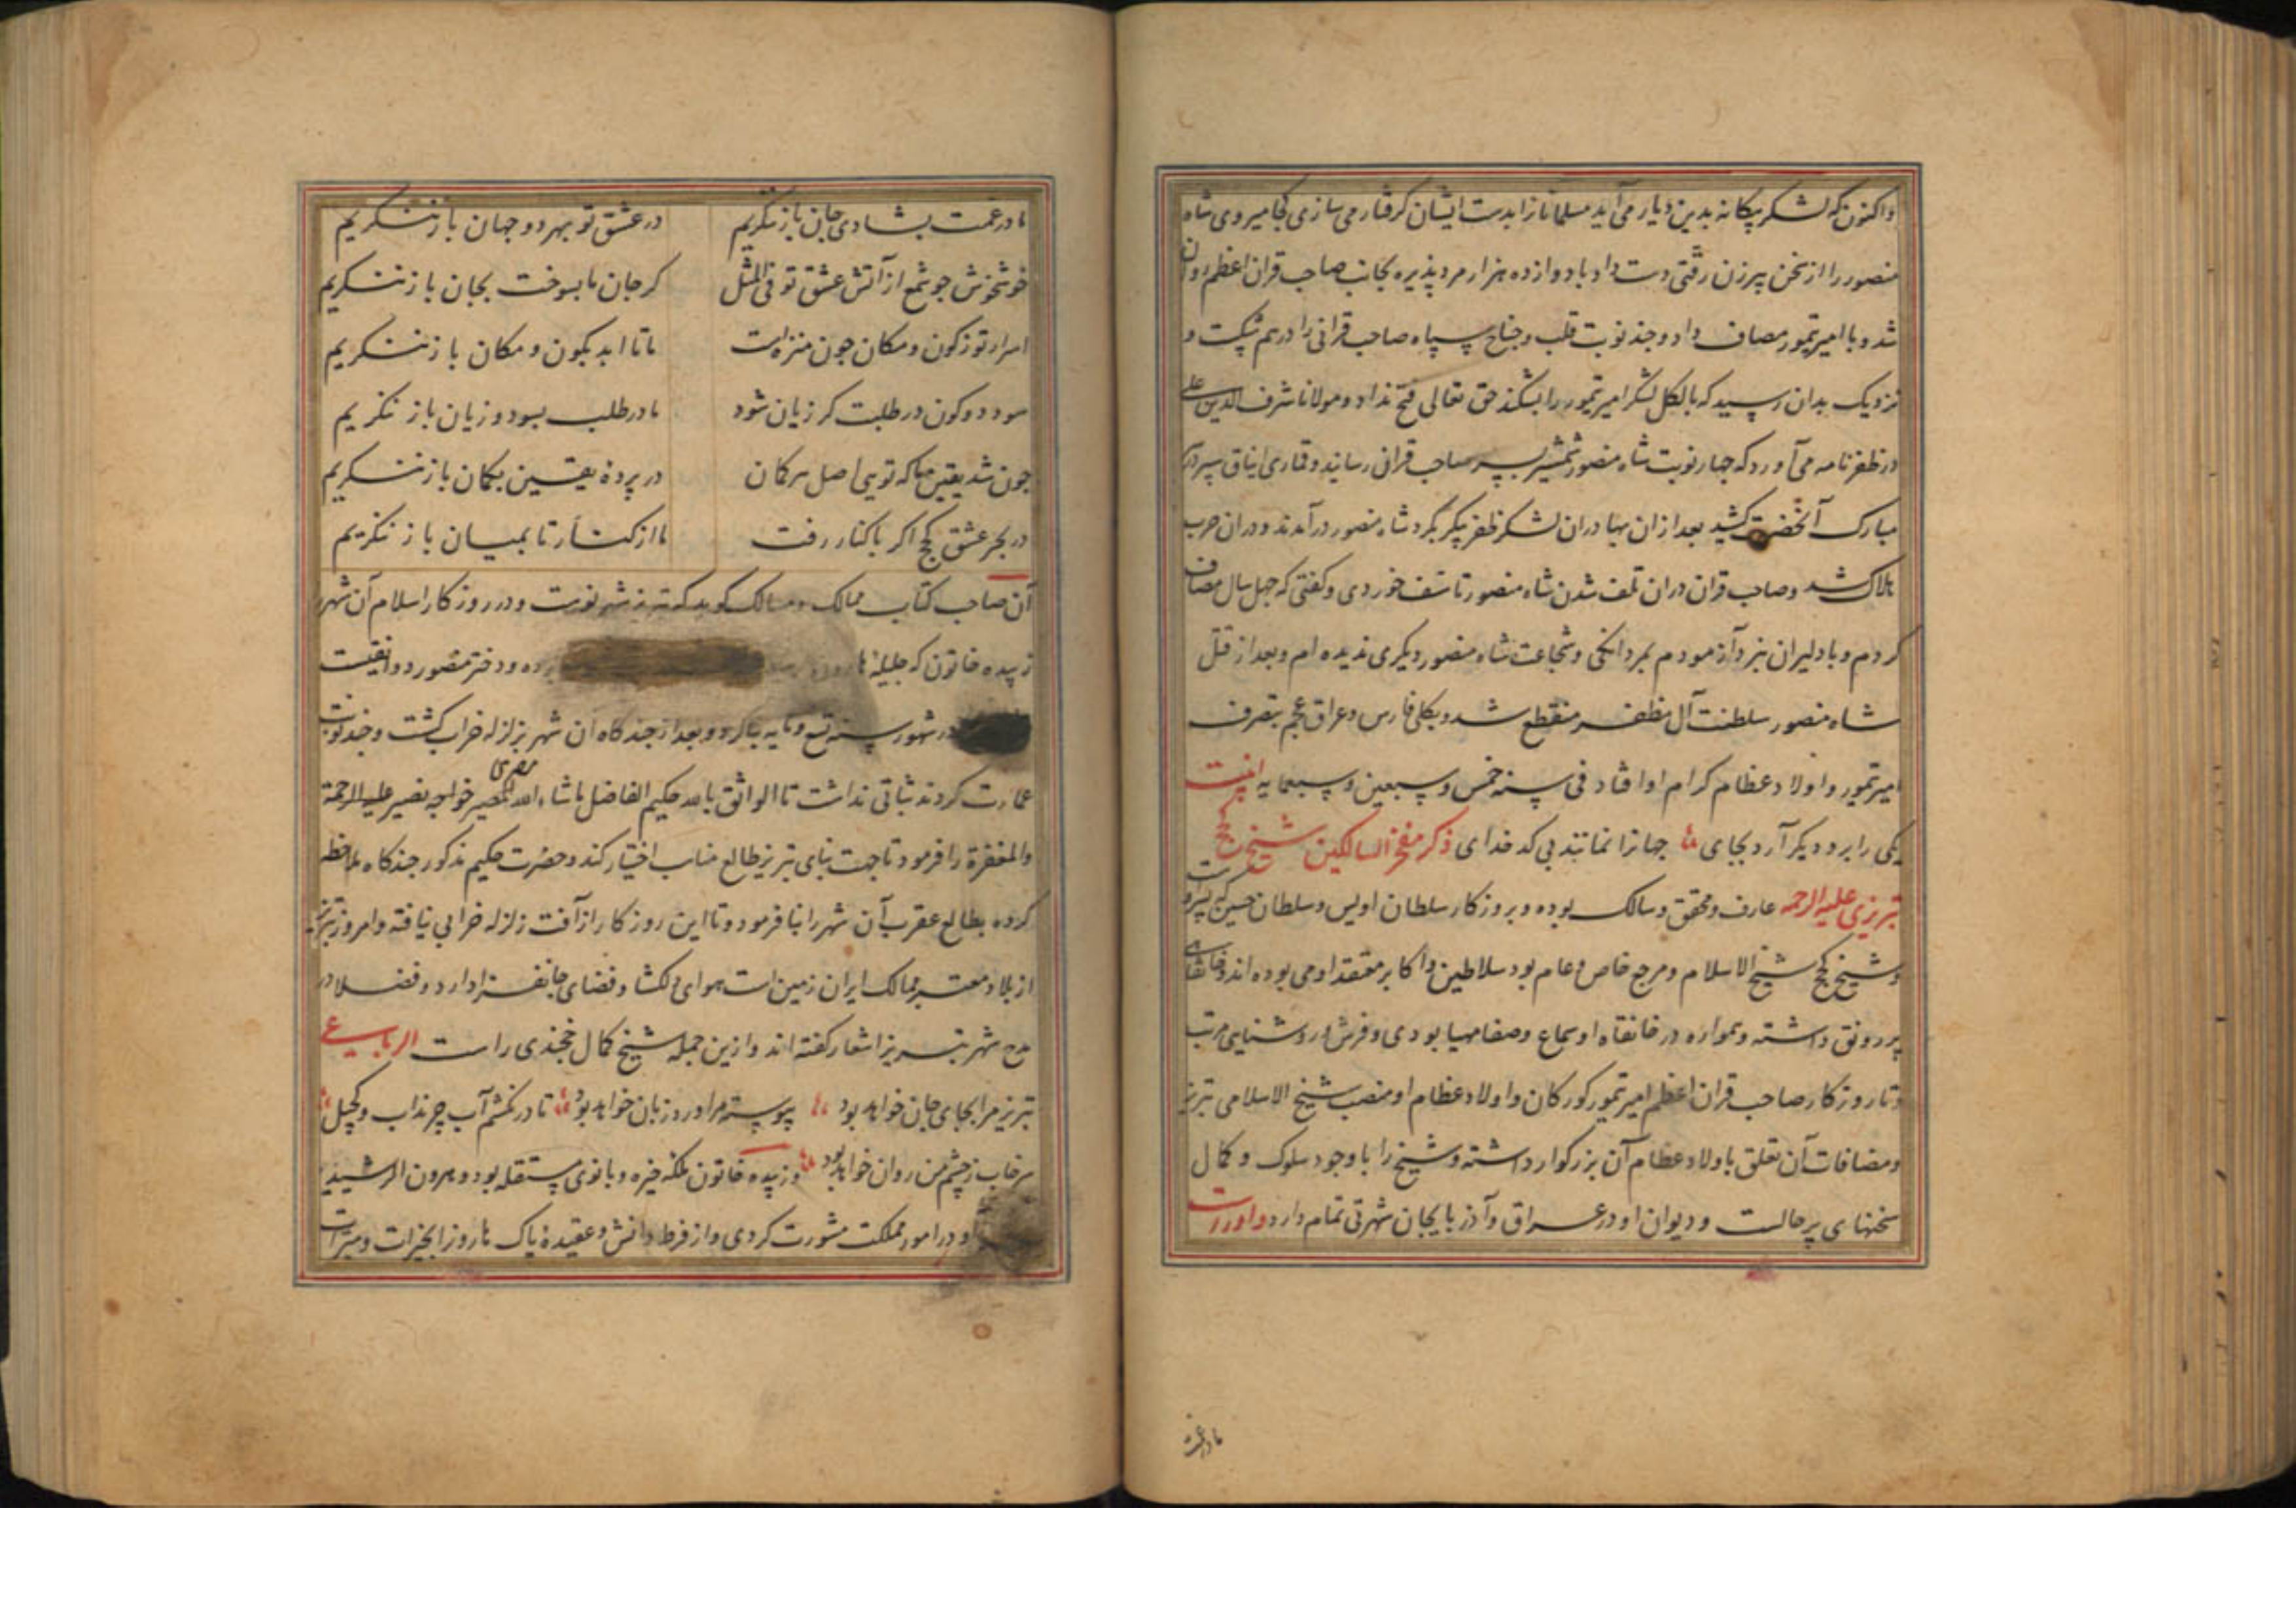 واکنون که لشکر بیکانه بدین دیار می آید مسلمانانرا بدست ایشان کرفتار می سازی کجا میروی شاه
منصور را از سخن پیرزن رقتی دست داد با دوازده هزار مرد پذیره بجانب صاحب قران اعظم روان
شد و با امیر تیمور مصاف داد و جند نوبت قلب و جناح سپاه صاحب قرانی را درهم شکست و
نزدیک بدان رسید که بالکل لشکر امیر تیمور را بشکند حق تعالی فتح نداد و مولانا شرف الدین علی
در ظفرنامه می آورد که جهار نوبت شاه منصور شمشیر بسر صاحب قران رسانید و قماری ایناق سپر بر سر
مبارک آنحضرت کشید بعد ازان بهادران لشکر ظفر پیکر بکرد شاه منصور درآمدند و دران حرب
هلاک شد و صاحب قران دران تلف شدن شاه منصور تاسف خوردی و کفتی که جهل سال مصاف
کردم و با دلیران نبرد آزمودم بمردانکی و شجاعت شاه منصور دیکری ندیده ام و بعد از قتل
شاه منصور سلطنت آل مظفر منقطع شد و بکلی فارس و عراق عجم بتصرف
امیر تیمور و اولاد عظام کرام او افتاد فی سنه خمس و سبعین و سبعمایه اینست
یکی را برد دیکر آرد بجای جهانرا نمانند بی کدخدای ذکر مفخر السالکین شیخ کجج
تبریزی علیه الرحمه عارف و محقق و سالک بوده و بروزکار سلطان اویس و سلطان حسین پسر اوست
و شیخ کجج شیخ الاسلام و مرجع خاص و عام بود سلاطین و اکابر معتقد او می بوده اند و خانقاهی
پر رونق داشته و همواره در خانقاه او سماع و صفا مهیا بودی و فرش و روشنایی مرتب
و تا روزکار صاحب قران اعظم امیر تیمور کورکان و اولاد عظام او منصب شیخ الاسلامی تبریز
و مضافات آن تعلق باولاد عظام آن بزرکوار داشته و شیخ را با وجود سلوک و کمال
سخنهای پر حالست و دیوان او در عراق و آذربایجان شهرتی تمام دارد و اوراست
ما در غمت
ما در غمت بشادی جان باز ننکریم در عشق تو بهر دو جهان باز ننکریم
خوش خوش جو شمع از آتش عشق تو فی المثل کر جان ما بسوخت بجان باز ننکریم
اسرار تو ز کون و مکان جون منزه است ما تا ابد بکون و مکان باز ننکریم
سود دو کون در طلبت کر زیان شود ما در طلب بسود و زیان باز ننکریم
جون شد یقین ما که تویی اصل هر کمان در پرده یقین بکمان باز ننکریم
در بحر عشق کجج اکر با کنار رفت ما از کنار تا بمیان باز ننکریم
آن صاحب کتاب ممالک و مسالک کوید که تبریز شهر نوست و در روزکار اسلام آن شهر
زبیده خاتون که جلیله هارون بوده و دختر منصور دوانقیست
در شهور سنه تسع و مایه بنا کرد و بعد از جندکاه آن شهر بزلزله خراب کشت و جند نوبت
عمارت کردند ثباتی نداشت تا الواثق بالله حکیم الفاضل ماشاء الله المصری خواجه نصیر علیه الرحمة
والمغفرة را فرمود تا جهت بنای تبریز طالع مناسب اختیار کند و حضرت حکیم مذکور جندکاه ملاحظه
کرده بطالع عقرب آن شهر را بنا فرمود و تا این روزکار از آفت زلزله خرابی نیافته و امروز تبریز
از بلاد معتبر ممالک ایران زمین است هوای دلکشا و فضای جانفزا دارد و فضلا در
مدح شهر تبریز اشعار کفته اند و ازین جمله شیخ کمال خجندی راست الرباعی
تبریز مرا بجای جان خواهد بود پیوسته مرا ورد زبان خواهد بود تا درنکشم آب چرنداب و کجیل
سرخاب ز چشم من روان خواهد بود و زبیده خاتون ملکه خیره و بانوی مستقله بود و هرون الرشید
او در امور مملکت مشورت کردی و از فرط دانش و عقیده پاک هاروزا بخیرات و مبرات